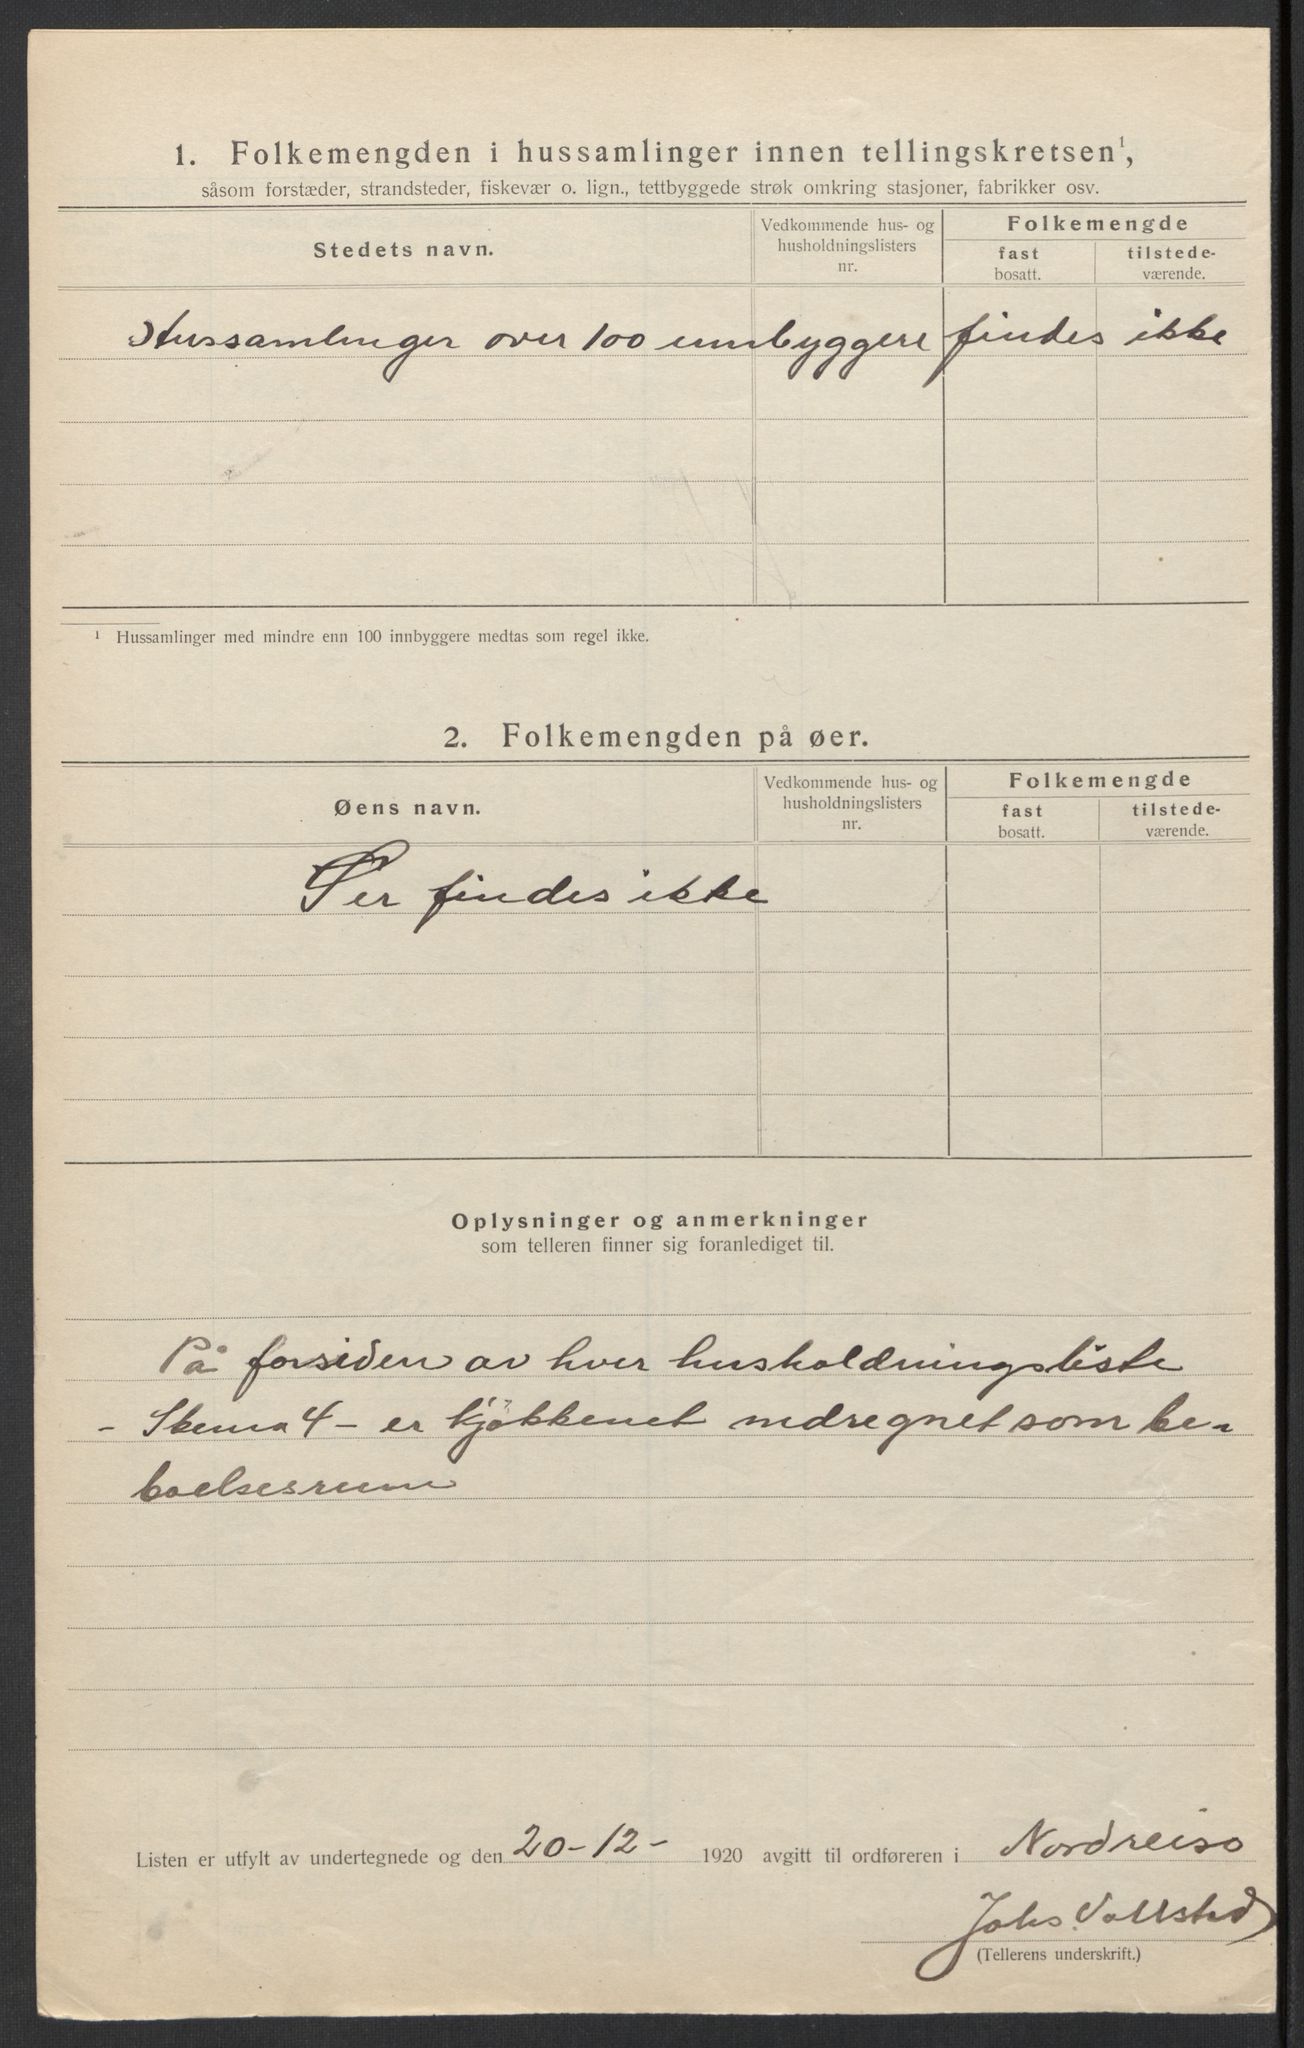 1. Folkemengden i hussamlinger innen tellingskretsen¹,
såsom forstæder, strandsteder, fiskevær o. lign., tettbyggede strøk omkring stasjoner, fabrikker osv.
Stedets navn.
Vedkommende hus- og
husholdningslisters
nr.
Folkemengde
fast
bosatt.
tilstede-
værende.
Hussamlinger over 100 innbyggere findes ikke
¹ Hussamlinger med mindre enn 100 innbyggere medtas som regel ikke.
2. Folkemengden på øer.
Øens navn.
Vedkommende hus- og
husholdningslisters
nr.
Folkemengde
fast
bosatt.
tilstede-
værende.
Øer findes ikke
Oplysninger og anmerkninger
som telleren finner sig foranlediget til.
På forsiden av hver husholdningsliste
- Skema 4 - er kjøkkenet indregnet som be-
boelsesrum
Listen er utfylt av undertegnede og den 20-12- 1920 avgitt til ordføreren i Nordreisa
Johs. Vollstad
(Tellerens underskrift.)